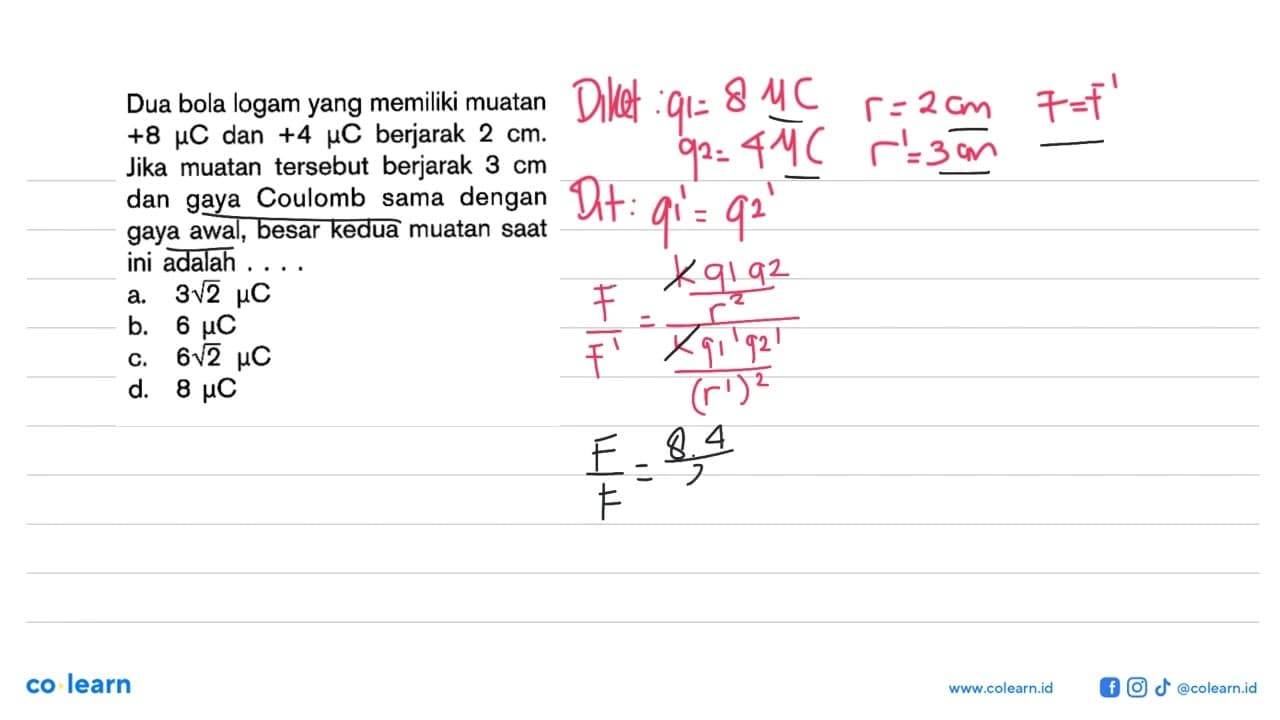 Dua bola logam yang memiliki muatan
+8 μC dan +4 μC berjarak 2 cm.
Jika muatan tersebut berjarak 3 cm
dan gaya Coulomb sama dengan
gaya awal, besar kedua muatan saat
ini adalah . . . .
a. 3√2 μC
b. 6 μC
c. 6√2 μC
d. 8 μC
Diket : q1 = 8 μC r = 2 cm F = F'
q2 = 4 μC r' = 3 cm
Dit : q1' = q2'
F/F' = (k q1 q2 / r²) / (k q1' q2' / (r')²)
F/F = 8.4 /
co learn
www.colearn.id
@colearn.id